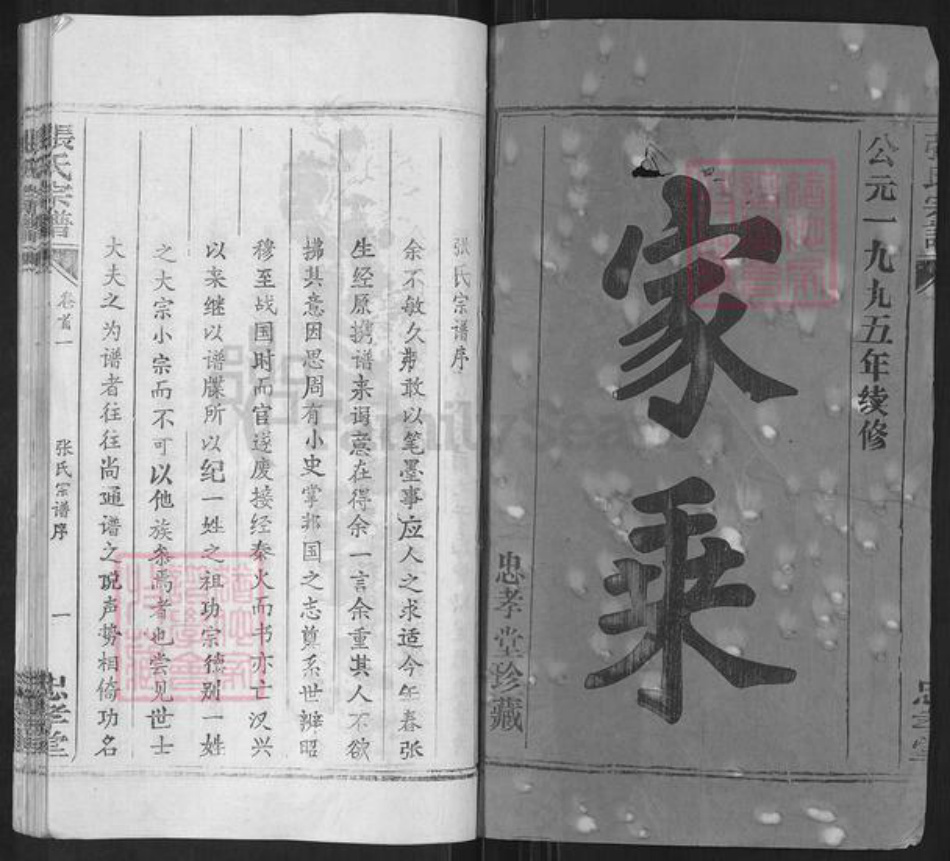 公元一九九五年续修
家乘
忠孝堂珍藏
张氏宗谱序
余不敏久弗敢以笔墨事应人之求适今年春张
生经原携谱来谓意在得余一言余重其人不欲
拂其意因思周有小史掌邦国之志奠系世辨昭
穆至战国时而官遂废接经秦火而书亦亡汉兴
以来继以谱牒所以纪一姓之祖功宗德别一姓
之大宗小宗而不可以他族参焉者也尝见世士
大夫之为谱者往往尚通谱之说声势相倚功名
張氏宗譜
卷首一
张氏宗谱序
一
忠孝堂